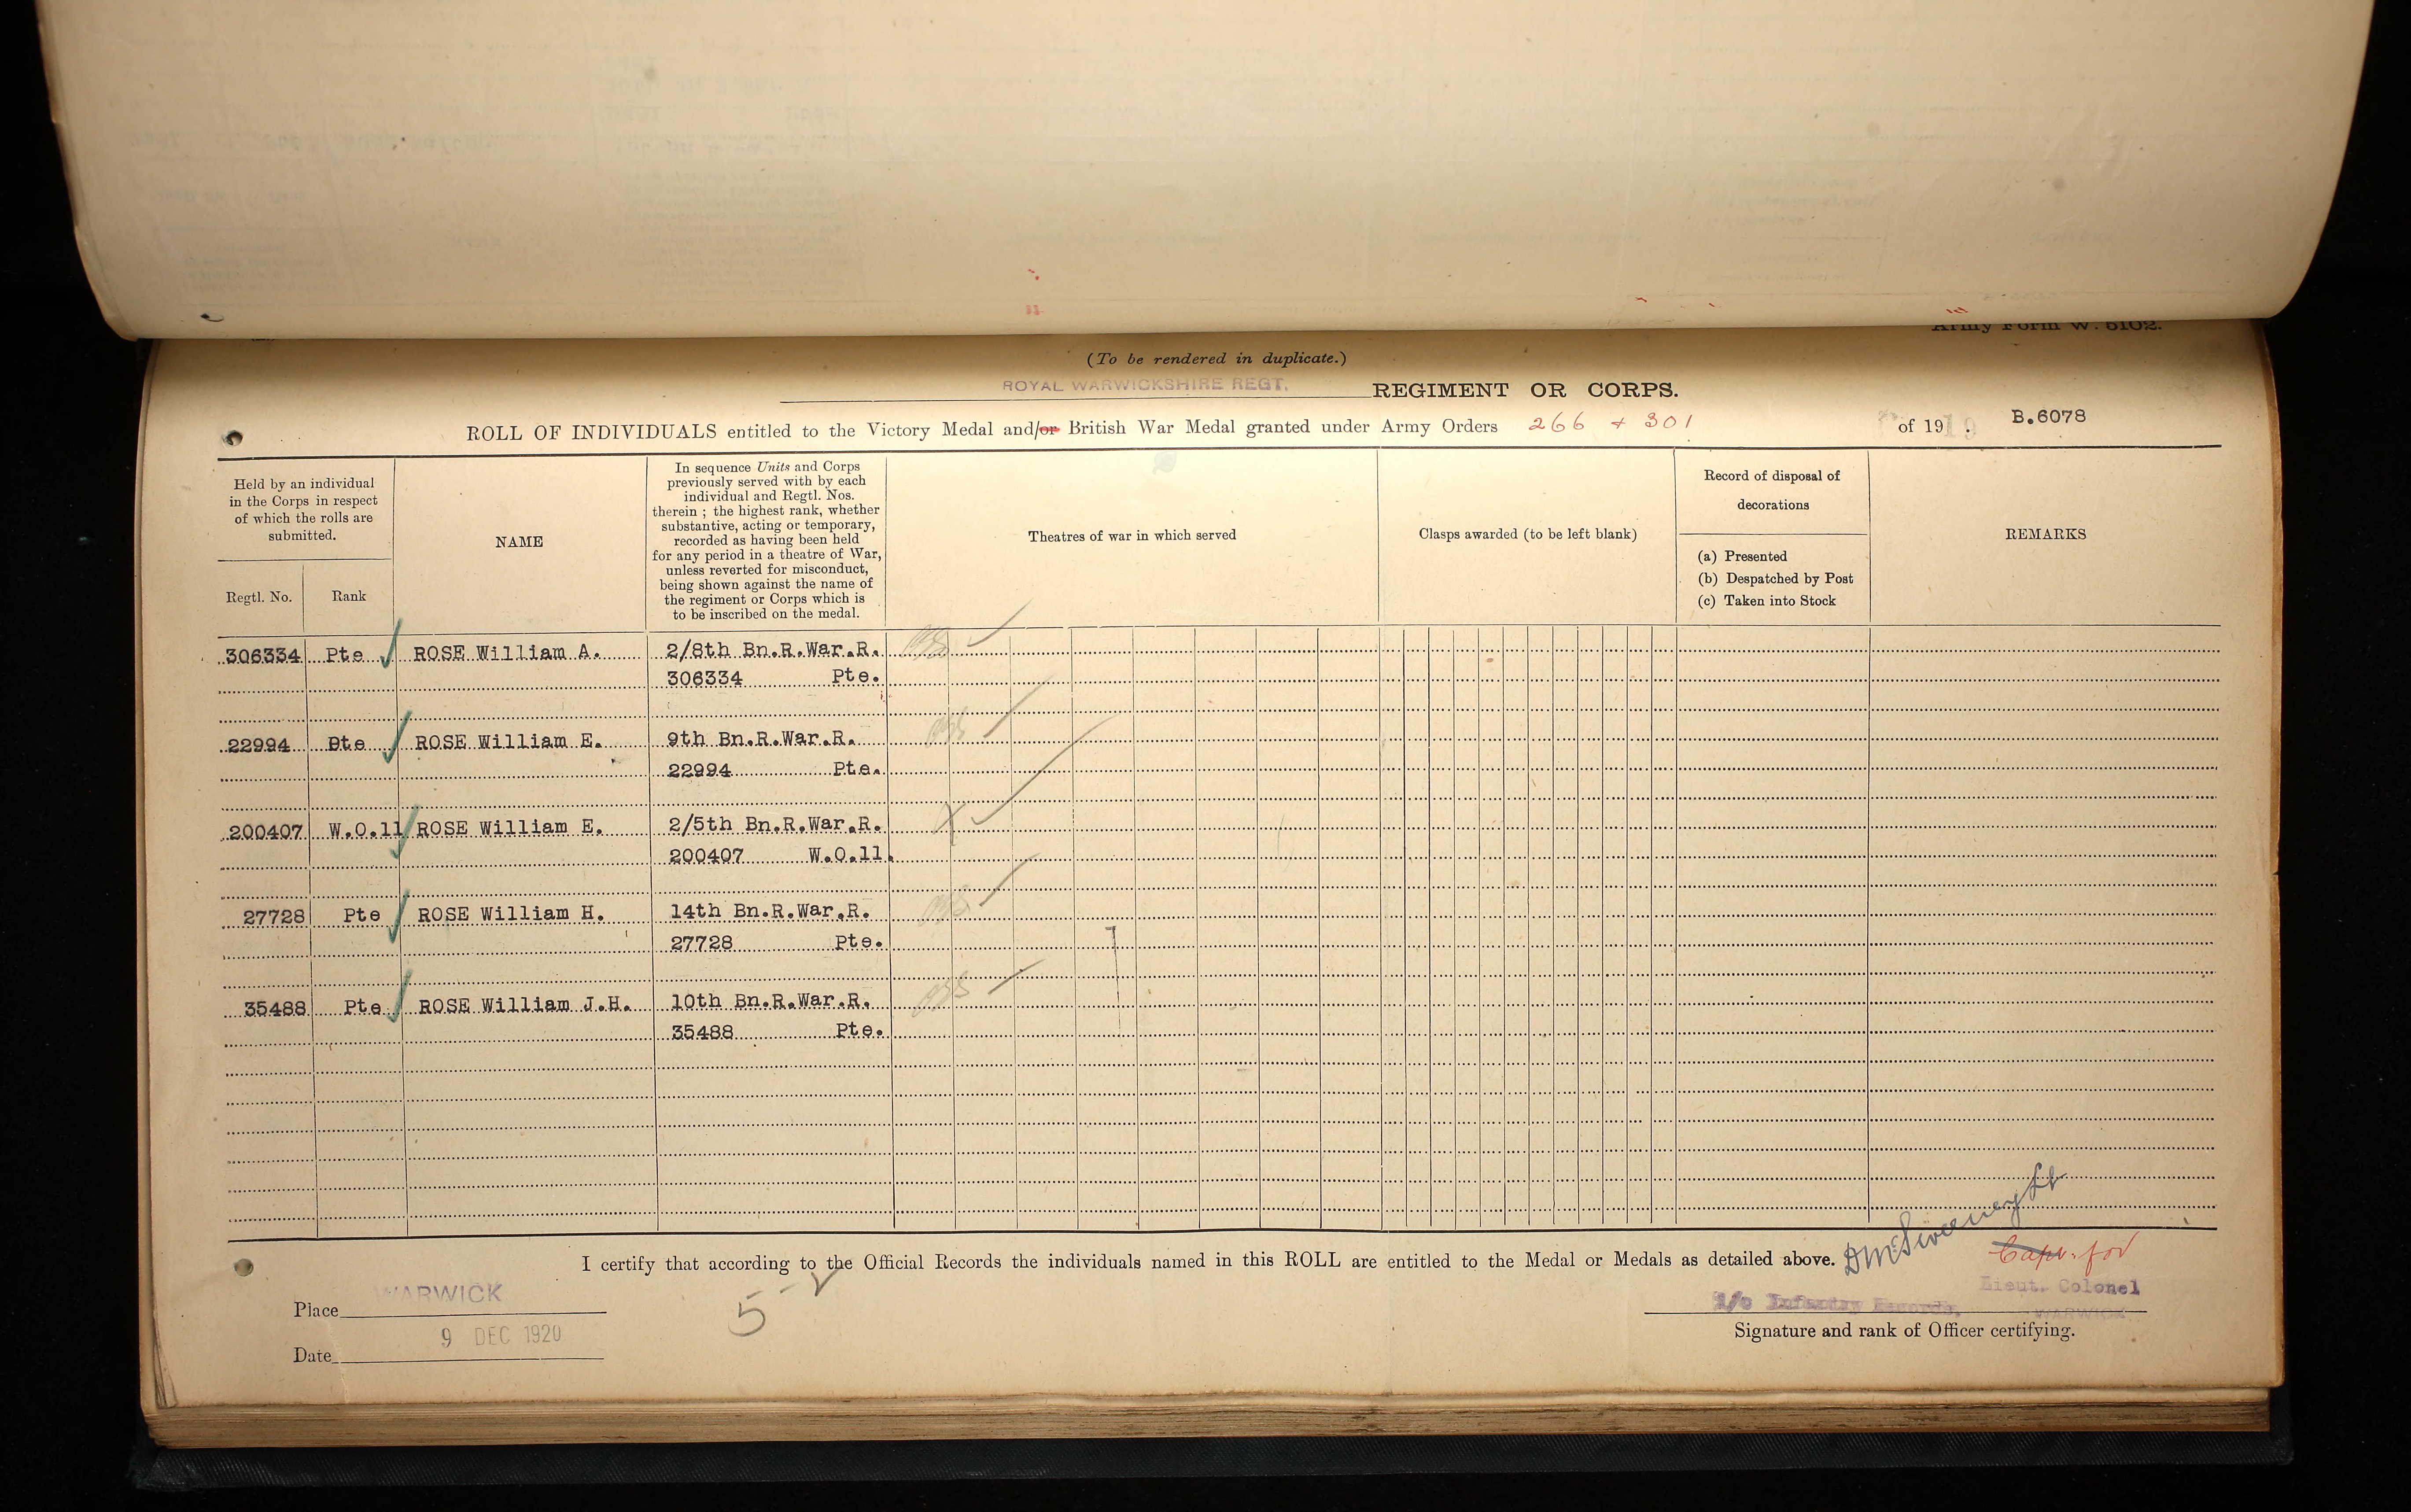 Army Form W. 5102.
(To be rendered in duplicate.)
ROYAL WARWICKSHIRE REGT. REGIMENT OR CORPS.
ROLL OF INDIVIDUALS entitled to the Victory Medal and/or British War Medal granted under Army Orders 266 + 301 of 1919. B.6078
Held by an individual in the Corps in respect of which the rolls are submitted.
Regtl. No.
Rank
NAME
In sequence Units and Corps
previously served with by each
individual and Regtl. Nos.
therein ; the highest rank, whether
substantive, acting or temporary,
recorded as having been held
for any period in a theatre of War,
unless reverted for misconduct,
being shown against the name of
the regiment or Corps which is
to be inscribed on the medal.
Theatres of war in which served
Clasps awarded (to be left blank)
Record of disposal of
decorations
(a) Presented
(b) Despatched by Post
(c) Taken into Stock
REMARKS
306334 Pte ROSE William A. 2/8th Bn.R.War.R.
306334 Pte.
22994 Pte ROSE William E. 9th Bn.R.War.R.
22994 Pte.
200407 W.O.11 ROSE William E. 2/5th Bn.R.War.R.
200407 W.O.11.
27728 Pte ROSE William H. 14th Bn.R.War.R.
27728 Pte.
35488 Pte ROSE William J.H. 10th Bn.R.War.R.
35488 Pte.
I certify that according to the Official Records the individuals named in this ROLL are entitled to the Medal or Medals as detailed above. D McSweeney Lt
Capt. for
Lieut. Colonel
Place WARWICK
5
i/c Infantry Records, WARWICK
Date 9 DEC 1920
Signature and rank of Officer certifying.